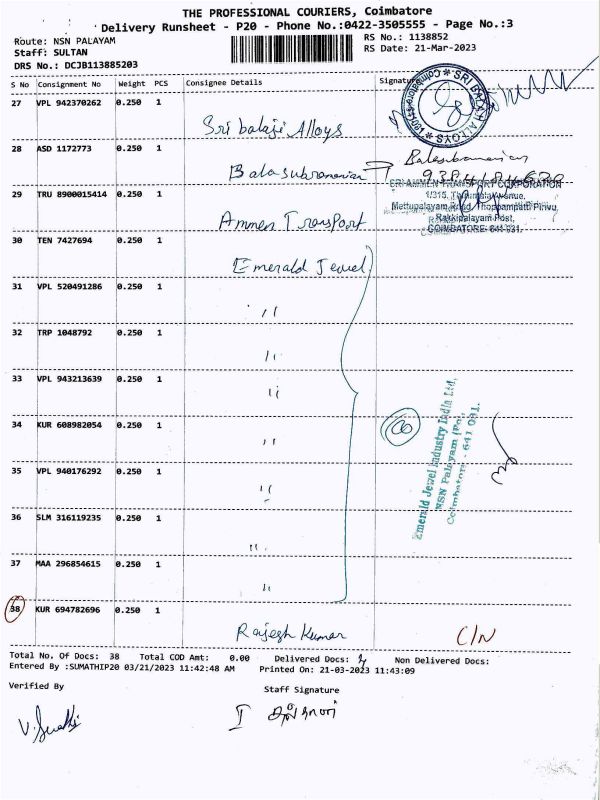 THE PROFESSIONAL COURIERS, Coimbatore
Delivery Runsheet - P20 - Phone No.:0422-3505555 - Page No.:3
Route: NSN PALAYAM
RS No.: 1138852
Staff: SULTAN
RS Date: 21-Mar-2023
DRS No.: DCJB113885203
S No Consignment No Weight PCS Consignee Details Signature
27 VPL 942370262 0.250 1
Sri balaji Alloys
SRI BALAJI ALLOYS
28 ASD 1172773 0.250 1
Balasubramanian
Balasubramanian
29 TRU 8900015414 0.250 1
Ammen Transport
SRI AMMEN TRANSPORT CORPORATION
Mettupalayam Road, Thoppampatti Pirivu,
Rakkipalayam Post,
COIMBATORE- 641 031.
30 TEN 7427694 0.250 1
Emerald Jewel
31 VPL 520491286 0.250 1
"
32 TRP 1048792 0.250 1
"
33 VPL 943213639 0.250 1
"
34 KUR 608982054 0.250 1
"
35 VPL 940176292 0.250 1
"
36 SLM 316119235 0.250 1
"
37 MAA 296854615 0.250 1
"
Emerald Jewel Industry India Ltd,
NSN Palayam (Po),
Coimbatore - 641 031.
38 KUR 694782696 0.250 1
Rajesh Kumar C/N
Total No. Of Docs: 38 Total COD Amt: 0.00 Delivered Docs: Non Delivered Docs:
Entered By :SUMATHIP20 03/21/2023 11:42:48 AM Printed On: 21-03-2023 11:43:09
Verified By Staff Signature